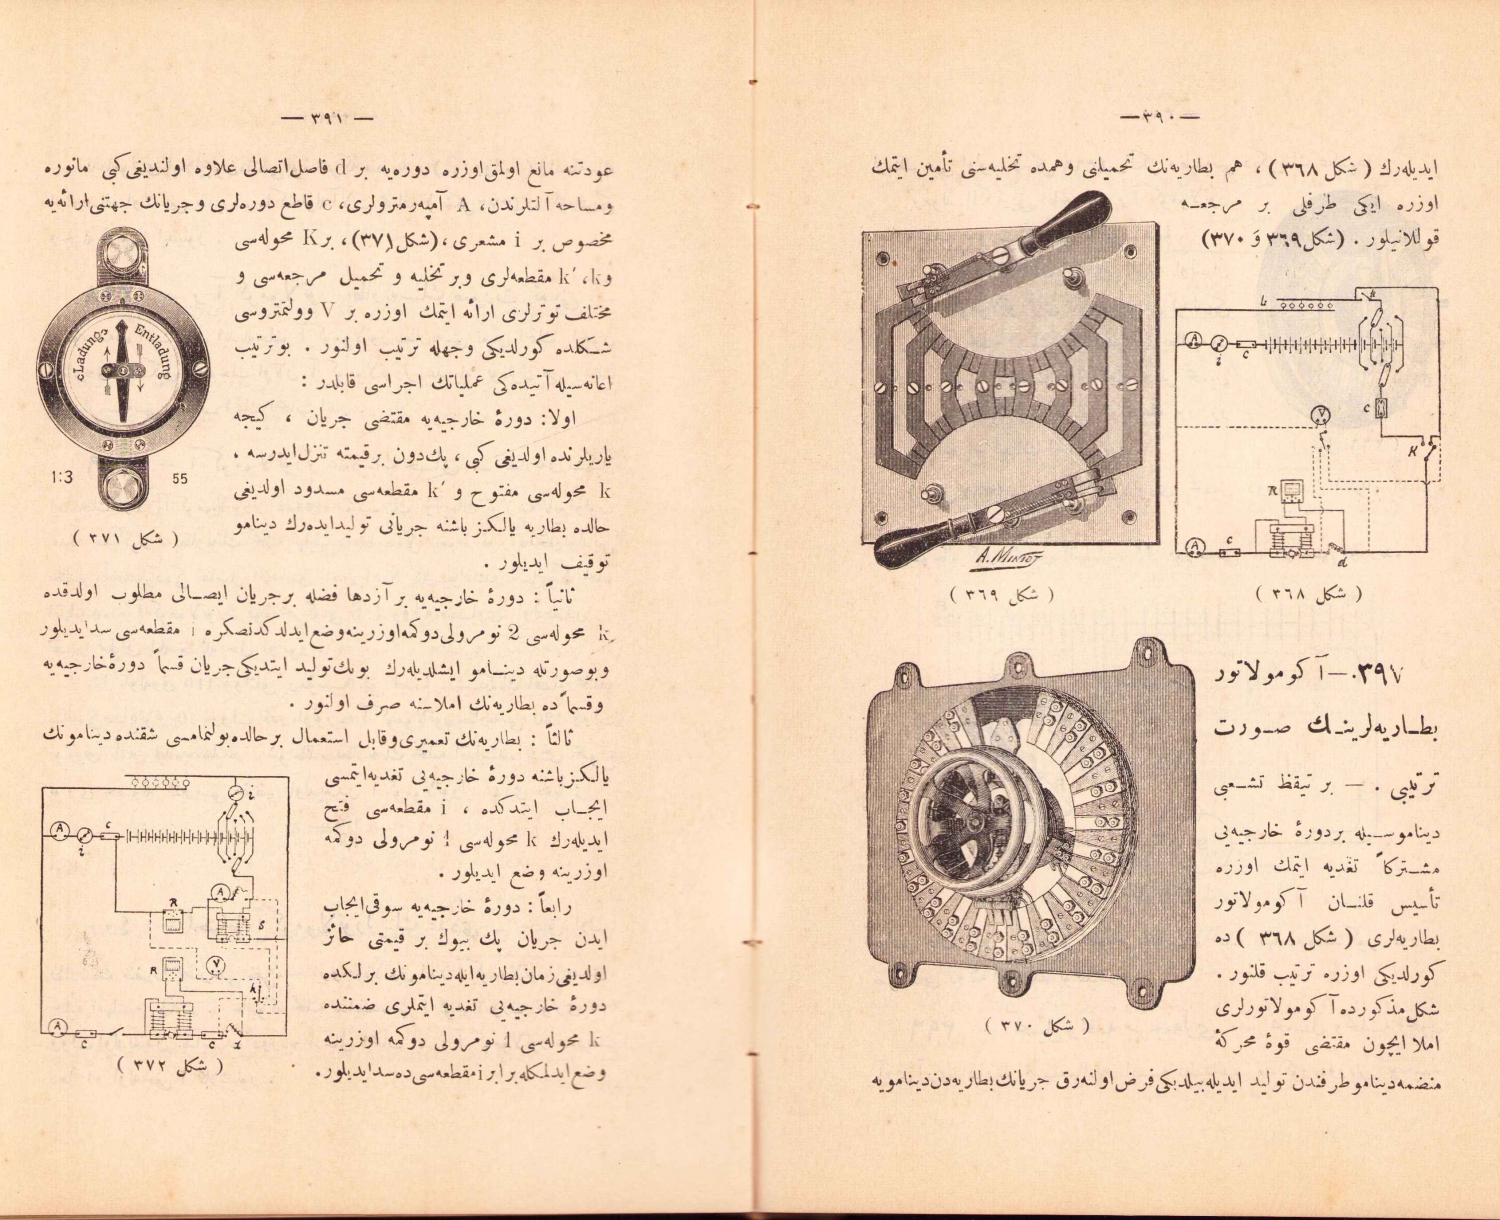 —٣٩٠—
ایدیله‌رك ( شكل ٣٦٨ ) ، هم بطاریه‌نك تحمیلنی وهمده تخلیه‌سنی تأمین ایتمك
اوزره ایكی طرفلی بر مرجعـه
قوللانیلور . (شكل ٣٦٩ وَ ٣٧٠)
A. Muntot
( شكل ٣٦٩ )
( شكل ٣٦٨ )
٣٩٧.— آكومولاتور
بطـاریه‌لرینـك صـورت
ترتیبی . — بر تیقظ تشـعبی
دیناموسـیله بردورهٔ خارجیه‌یی
مشـتركاً تغدیه ایتمك اوزره
تأسیس قلنـان آكومولاتور
بطاریه‌لری ( شكل ٣٦٨ ) ده
كورلدیكی اوزره ترتیب قلنور .
شكل مذكورده آكومولاتورلری
املا ایچون مقتضی قوهٔ محركهٔ
منضمه دینامو طرفندن تولید ایدیله‌بیلدیكی فرض اولنه‌رق جریانك بطاریه‌دن دینامویه
( شكل ٣٧٠ )
— ٣٩١ —
عودتنه مانع اولمق اوزره دوره‌یه بر d فاصل اتصالی علاوه اولندیغی كبی مانوره
ومساحه آلتلرندن، A آمپه‌رمترولری، c قاطع دوره‌لری وجریانك جهتنی ارائه‌یه
مخصوص بر i مشعری، (شكل ٣٧١)، بر K محوله‌سی
و k، k′ مقطعه‌لری وبر تخلیه و تحمیل مرجعه‌سی و
مختلف توترلری ارائه ایتمك اوزره بر V وولتمتروسی
شـكلده كورلدیكی وجهله ترتیب اولنور . بوترتیب
اعانه‌سیله آتیده‌كی عملیاتك اجراسی قابلدر :
اولا: دورهٔ خارجیه‌یه مقتضی جریان ، كیجه
یاریلرنده اولدیغی كبی ، پك‌دون برقیمته تنزل ایدرسه ،
k محوله‌سی مفتوح و k′ مقطعه‌سی مسدود اولدیغی
حالده بطاریه یالكز باشنه جریانی تولیدایده‌رك دینامو
توقیف ایدیلور .
Ladung
Entladung
1:3
55
( شكل ٣٧١ )
ثانیاً : دورهٔ خارجیه‌یه بر آزدها فضله برجریان ایصـالی مطلوب اولدقده
k محوله‌سی 2 نومرولی دوكمه اوزرینه وضع ایدلدكدنصكره i مقطعه‌سی سدایدیلور
وبوصورتله دینـامو ایشلدیله‌رك بونك تولید ایتدیكی جریان قسماً دورهٔ خارجیه‌یه
وقسماً ده بطاریه‌نك املاسنه صرف اولنور .
ثالثاً : بطاریه‌نك تعمیری وقابل استعمال برحالده بولنمامسی شقنده دینامونك
یالكز باشنه دورهٔ خارجیه‌یی تغدیه ایتمسی
ایجـاب ایتدكده ، i مقطعه‌سی فتح
ایدیله‌رك k محوله‌سی 1 نومرولی دوكمه
اوزرینه وضع ایدیلور .
رابعاً : دورهٔ خارجیه‌یه سوقی ایجاب
ایدن جریان پك بیوك بر قیمتی حائز
اولدیغی زمان بطاریه ایله دینامونك برلكده
دورهٔ خارجیه‌یی تغدیه ایتملری ضمننده
k محوله‌سی 1 نومرولی دوكمه اوزرینه
وضع ایدلمكله برابر i مقطعه‌سی ده سدایدیلور.
( شكل ٣٧٢ )